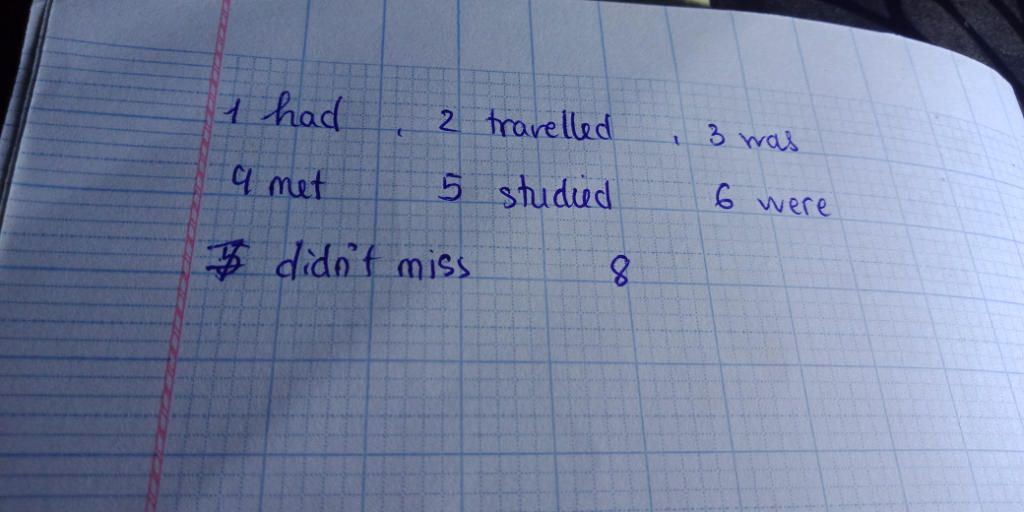 1 had , 2 travelled , 3 was
4 met 5 studied 6 were
7 didn't miss 8